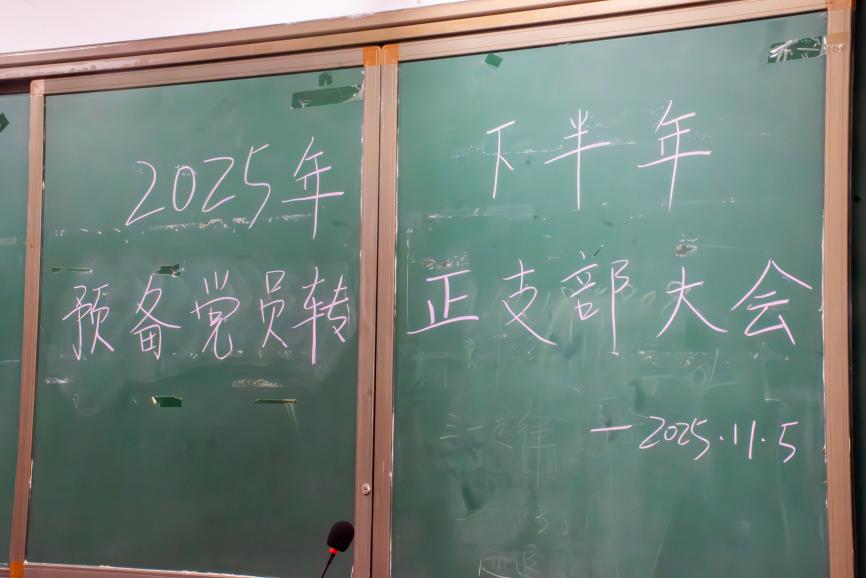 2025年下半年
预备党员转正支部大会
—2025.11.5